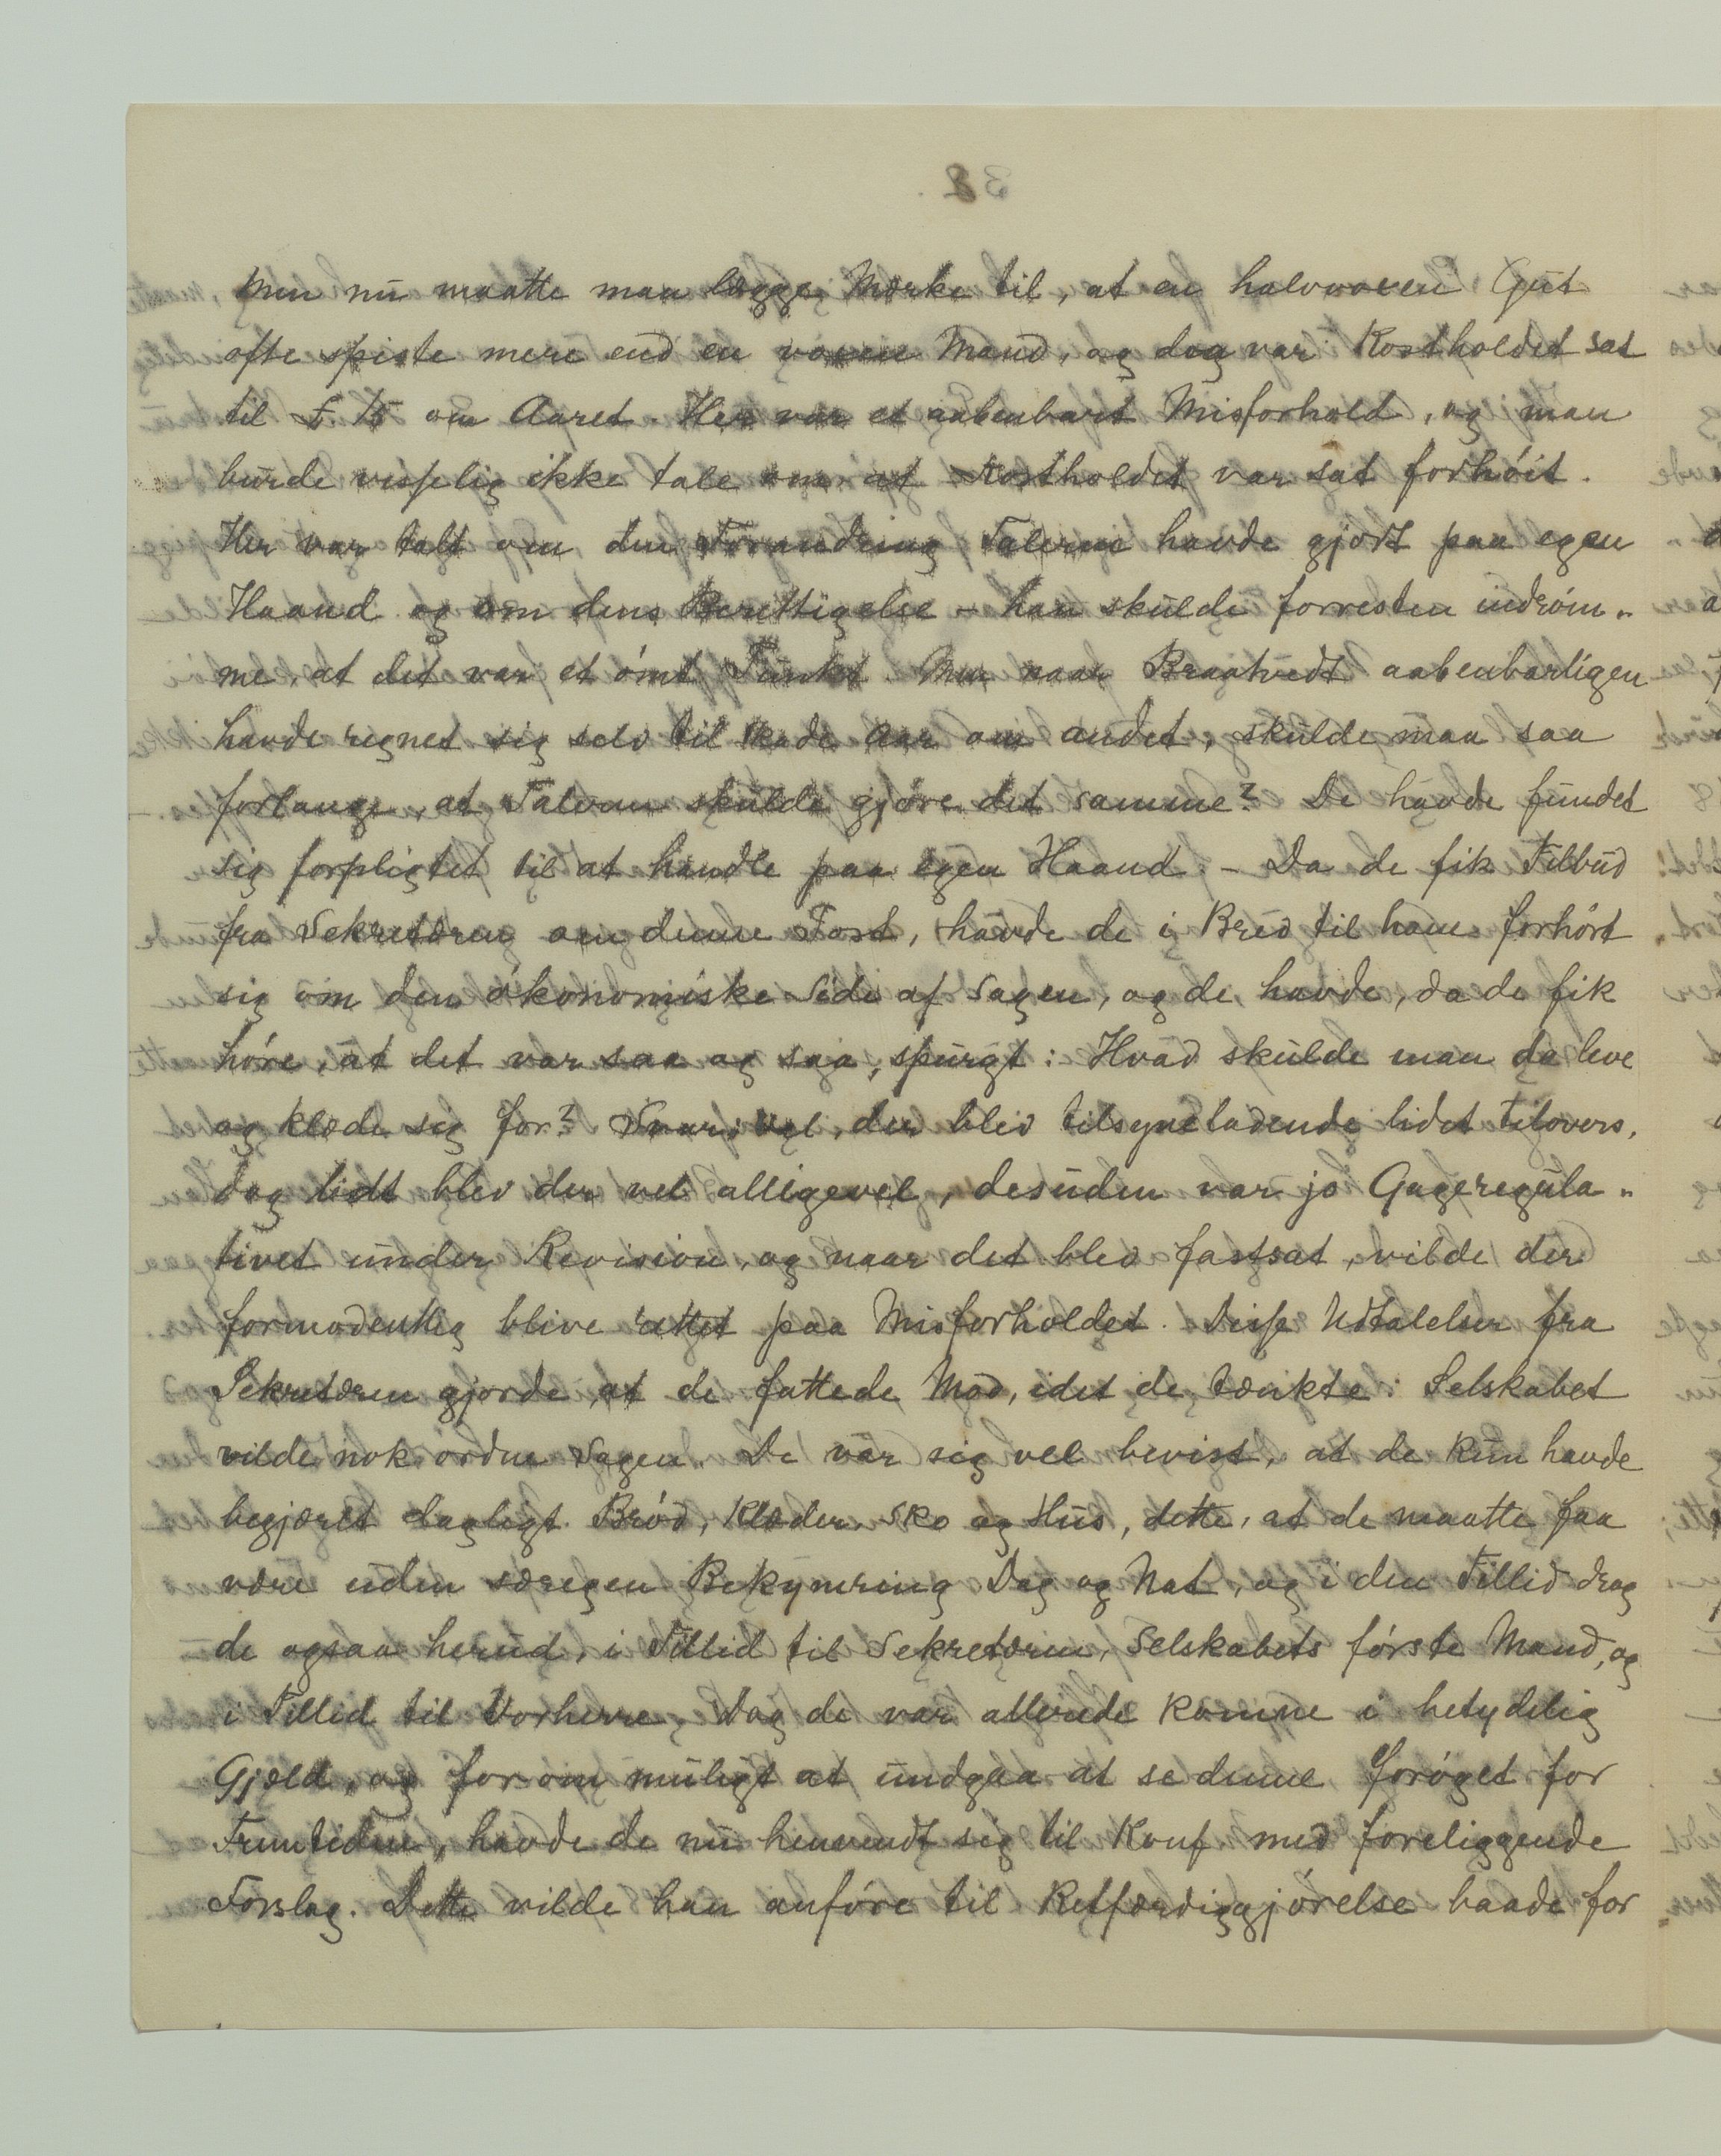 32.
men nu maatte man lægge Mærke til, at en halvvoxen Gut
ofte spiste mere end en voxen Mand, og dog var Kostholdet sat
til £ 15 om Aaret. Her var et aabenbart Misforhold, og man
burde visselig ikke tale om at Kostholdet var sat forhöit.
Her var talt om den Forandring Talerne havde gjort paa egen
Haand og om dens Berettigelse – han skulde forresten indröm„
me, at det var et ömt Punkt. Men naar Braatvedt aabenbarligen
havde regnet sig selv til Skade Aar om andet, skulde man saa
forlange, at Taleren skulde gjöre det samme? De havde fundet
sig forpligtet til at handle paa egen Haand. – Da de fik Tilbud
fra Sekretæren om denne Post, havde de i Brev til ham forhört
sig om den ökonomiske Side af Sagen, og de havde, da de fik
höre, at det var saa og saa, spurgt: Hvad skulde man da leve
og klæde sig for? Svar: Vel, der blev tilsyneladende lidet tilovers,
dog lidt blev der vel alligevel, desuden var jo Gageregula„
tivet under Revision, og naar det blev fastsat, vilde der
formodentlig blive rettet paa Misforholdet. Disse Udtalelser fra
Sekretæren gjorde, at de fattede Mod, idet de tænkte: Selskabet
vilde nok ordne Sagen. De var sig vel bevisst, at de kun havde
begjæret dagligt Bröd, Klæder, Sko og Hus, dette, at de maatte faa
være uden særegen Bekymring Dag og Nat, og i den Tillid drog
de ogsaa herud, i Tillid til Sekretæren, Selskabets förste Mand, og
i Tillid til Vorherre. Dog de var allerede komne i betydelig
Gjæld, og for om muligt at undgaa at se denne foröget for
Fremtiden, havde de nu henvendt sig til Konf. med foreliggende
Forslag. Dette vilde han anföre til Retfærdiggjörelse baade for